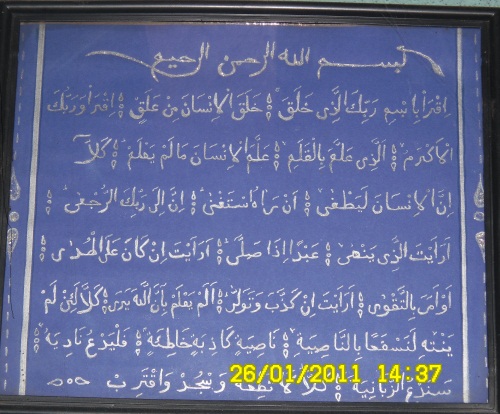 بسم الله الرحمن الرحيم
اقرأ باسم ربك الذى خلق خلق الانسان من علق اقرأ وربك
الاكرم الذى علم بالقلم علم الانسان مالم يعلم كلا
ان الانسان ليطغى ان راه استغنى ان الى ربك الرجعى
ارايت الذى ينهى عبدا اذا صلى ارايت ان كان على الهدى
او امر بالتقوى ارايت ان كذب وتولى الم يعلم بان الله يرى كلا لئن لم
ينته لنسفعا بالناصية ناصية كاذبة خاطئة فليدع ناديه
سندع الزبانية كلا لا تطعه وسجد واقترب
26/01/2011 14:37